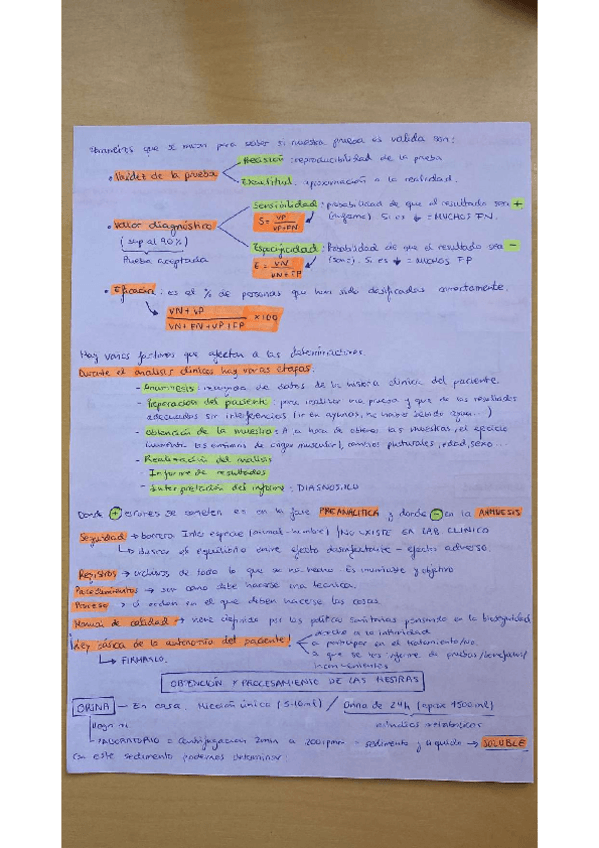 que se usan para saber si nuestra prueba es válida son:
• Validez de la prueba
Precisión: reproducibilidad de la prueba
Exactitud: aproximación a la realidad.
• Valor diagnóstico
(sup al 90%)
Prueba aceptada
Sensibilidad: probabilidad de que el resultado sea +
S = VP / VP+FN
(enfermo). Si es ↓ = MUCHOS FN.
Especificidad: Probabilidad de que el resultado sea -
E = VN / VN+FP
(sano). Si es ↓ = MUCHOS FP
• Eficacia: es el % de personas que han sido clasificadas correctamente.
VN+VP / VN+FN+VP+FP x100
Hay varios factores que afectan a las determinaciones.
Durante el análisis clínicos hay varias etapas.
- Anamnesis: recogida de datos de la historia clínica del paciente.
- Preparación del paciente: para realizar una prueba y que de los resultados
adecuados sin interferencias (ir en ayunas, no haber bebido agua...)
- Obtención de la muestra: A la hora de obtener las muestras, el ejercicio
(aumenta las enzimas de origen muscular), cambios posturales, edad, sexo...
- Realización del análisis
- Informe de resultados
- Interpretación del informe: DIAGNOSTICO
Donde + errores se cometen es en la fase PREANALITICA y donde - en la
Seguridad → barrera Inter especie (animal-hombre) / NO EXISTE EN LAB CLINICO
↳ buscar el equilibrio entre efecto desinfectante - efecto adverso.
Registros → archivos de todo lo que se ha hecho. Es inmutable y objetivo
Procedimientos → son como debe hacerse una técnica.
Proceso → el orden en el que deben hacerse las cosas.
Manual de calidad → viene definido por las políticas sanitarias pensando en la bioseguridad
¡Ley básica de la autonomía del paciente!
derecho a la intimidad
a participar en el tratamiento/no.
a que se les informe de pruebas/beneficios/
inconvenientes
↳ FIRMARLO.
OBTENCIÓN Y PROCESAMIENTO DE LAS MUESTRAS
ORINA - En casa. Micción única (5-10ml) / Orina de 24h (aprox 1500ml)
estudios metabólicos
LABORATORIO = Centrifugación a sedimento y líquido → SOLUBLE
Con este sedimento podemos determinar